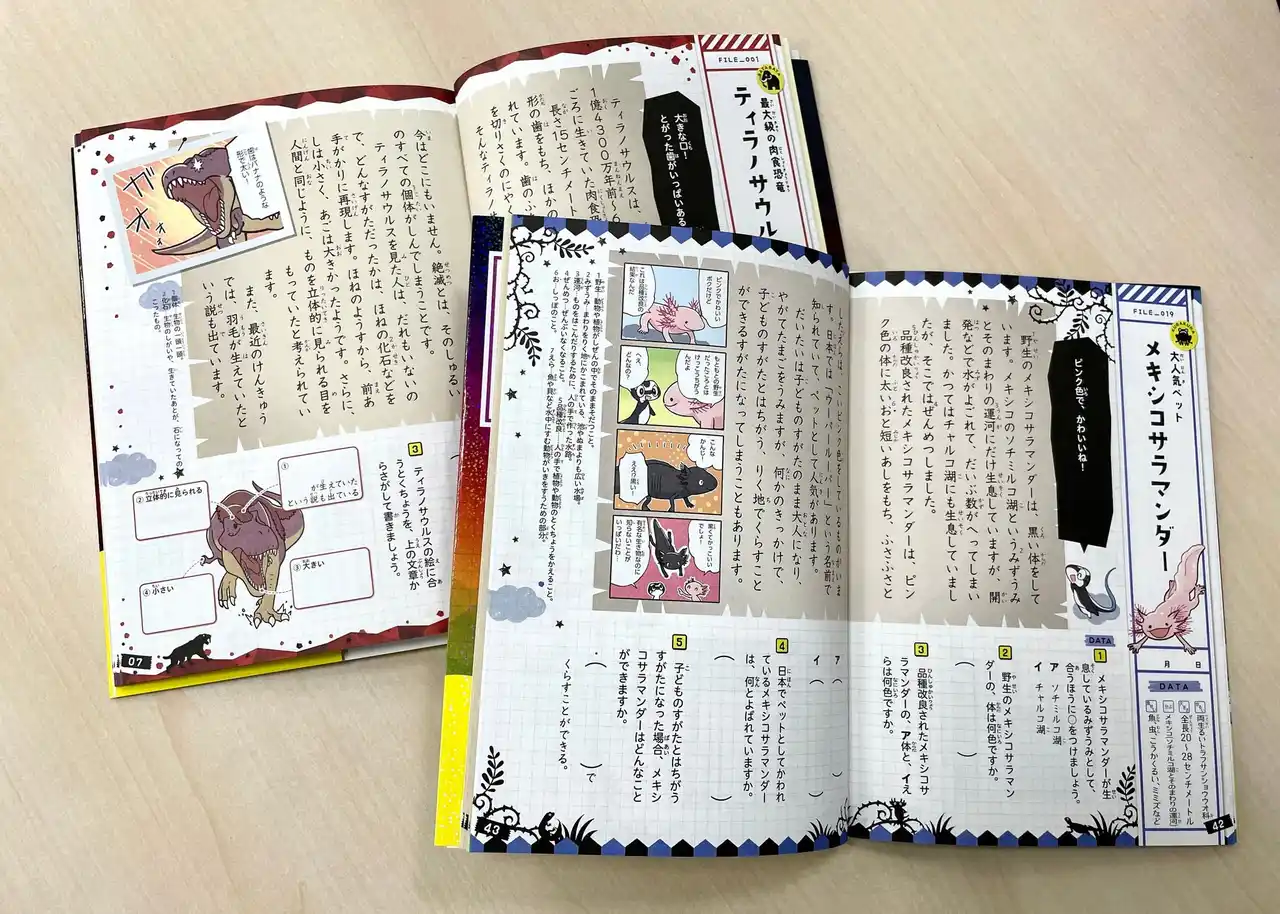 FILE_001
最大級の肉食恐竜
ティラノサウル
大きな口!
とがった歯がいっぱいある
ティラノサウルスは、
1億4300万年前〜6
ごろに生きていた肉食
長さ15センチメート
形の歯をもち、ほかの
れています。歯のふ
を切りさくのにや
そんなティラノサ
今はどこにもいません。絶滅とは、そのしゅるい
のすべての個体がしんでしまうことです。
ティラノサウルスを見た人は、だれもいないの
で、どんなすがただったかは、ほねの化石などを
手がかりに再現します。ほねのようすから、前あ
しは小さく、あごは大きかったようです。さらに、
人間と同じように、ものを立体的に見られる目を
もっていたと考えられてい
ます。
また、最近のけんきゅう
では、羽毛が生えていたと
いう説も出ています。
歯はバナナのような
形で太い!
ガオォォ
3 ティラノサウルスの絵に合
うとくちょうを、上の文章か
らさがして書きましょう。
①
が生えていた
という説も出ている
②立体的に見られる
③大きい
④小さい
07
FILE_019
大人気ペット
メキシコサラマンダー
ピンク色で、かわいいね!
野生のメキシコサラマンダーは、黒い体をして
います。メキシコのソチミルコ湖というみずうみ
とそのまわりの運河にだけ生息していますが、開
発などで水がよごれて、だいぶ数がへってしまい
ました。かつてはチャルコ湖にも生息していまし
たが、そこではぜんめつしました。
品種改良されたメキシコサラマンダーは、ピン
ク色の体に太いおと短いあしをもち、ふさふさと
す。日本では、「ウーパールーパー」という名前で
知られていて、ペットとして人気があります。
だいたいは子どものすがたのまま大人になり、
やがてたまごをうみますが、何かのきっかけで、
子どものすがたとはちがう、りく地でくらすこと
ができるすがたになってしまうこともあります。
ピンクでかわいい
ボクだけど
これは品種改良の
結果なんだ
もともとの野生
だったころとは
けっこうちがう
んだよ
へえ、
どんなの?
こんな
かんじ!
ええ!?黒い!
黒くてかっこいい
でしょ!
有名な生き物なのに
知らないことが
いっぱいだわ!
1 野生…動物や植物がしぜんの中でそのままそだつこと。
2 みずうみ…まわりをりく地にかこまれている、池やぬまよりも広い水場。
3 運河…ものをはこんだりするために、人の手で作った水路。
4 ぜんめつ…ぜんぶいなくなること。
5 品種改良…人の手で植物や動物のとくちょうをかえること。
6 お…しっぽのこと。
7 えら…魚や貝など水中にすむ動物がいきをするための部分。
月 日
DATA
両生るいトラフサンショウウオ科
全長20〜28センチメートル
メキシコ(ソチミルコ湖とそのまわりの運河)
魚、虫、こうかくるい、ミミズなど
DATA
1 メキシコサラマンダーが生
息しているみずうみとして、
合うほうに○をつけましょう。
ア ソチミルコ湖
イ チャルコ湖
2 野生のメキシコサラマン
ダーの、体は何色ですか。
3 品種改良されたメキシコサ
ラマンダーの、ア体と、イえ
らは何色ですか。
ア( )
イ( )
4 日本でペットとしてかわれ
ているメキシコサラマンダー
は、何とよばれていますか。
5 子どものすがたとはちがう
すがたになった場合、メキシ
コサラマンダーはどんなこと
ができますか。
・( )で
くらすことができる。
42
43